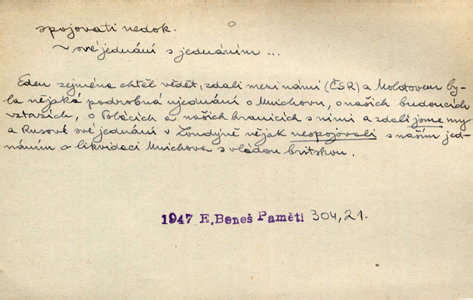 spojovati nedok.
~ své jednání s jednáním ...
Eden zejména chtěl vědět, zdali mezi námi (ČSR) a Molotovem by-
la nějaká podrobná ujednání o Mnichovu, o našich budoucích
vztazích, o Polácích a našich hranicích s nimi a zdali jsme my
a Rusové své jednání v Londýně nějak nespojovali s naším jed-
náním o likvidaci Mnichova s vládou britskou.
1947 E.Beneš Paměti 304,21.